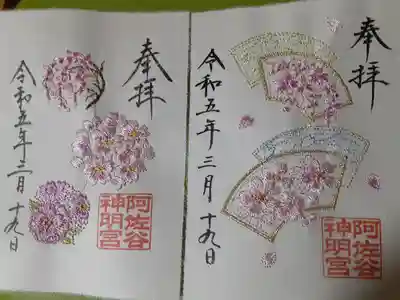 奉拝
令和五年三月十九日
阿佐谷
神明宮
奉拝
令和五年三月十九日
阿佐谷
神明宮